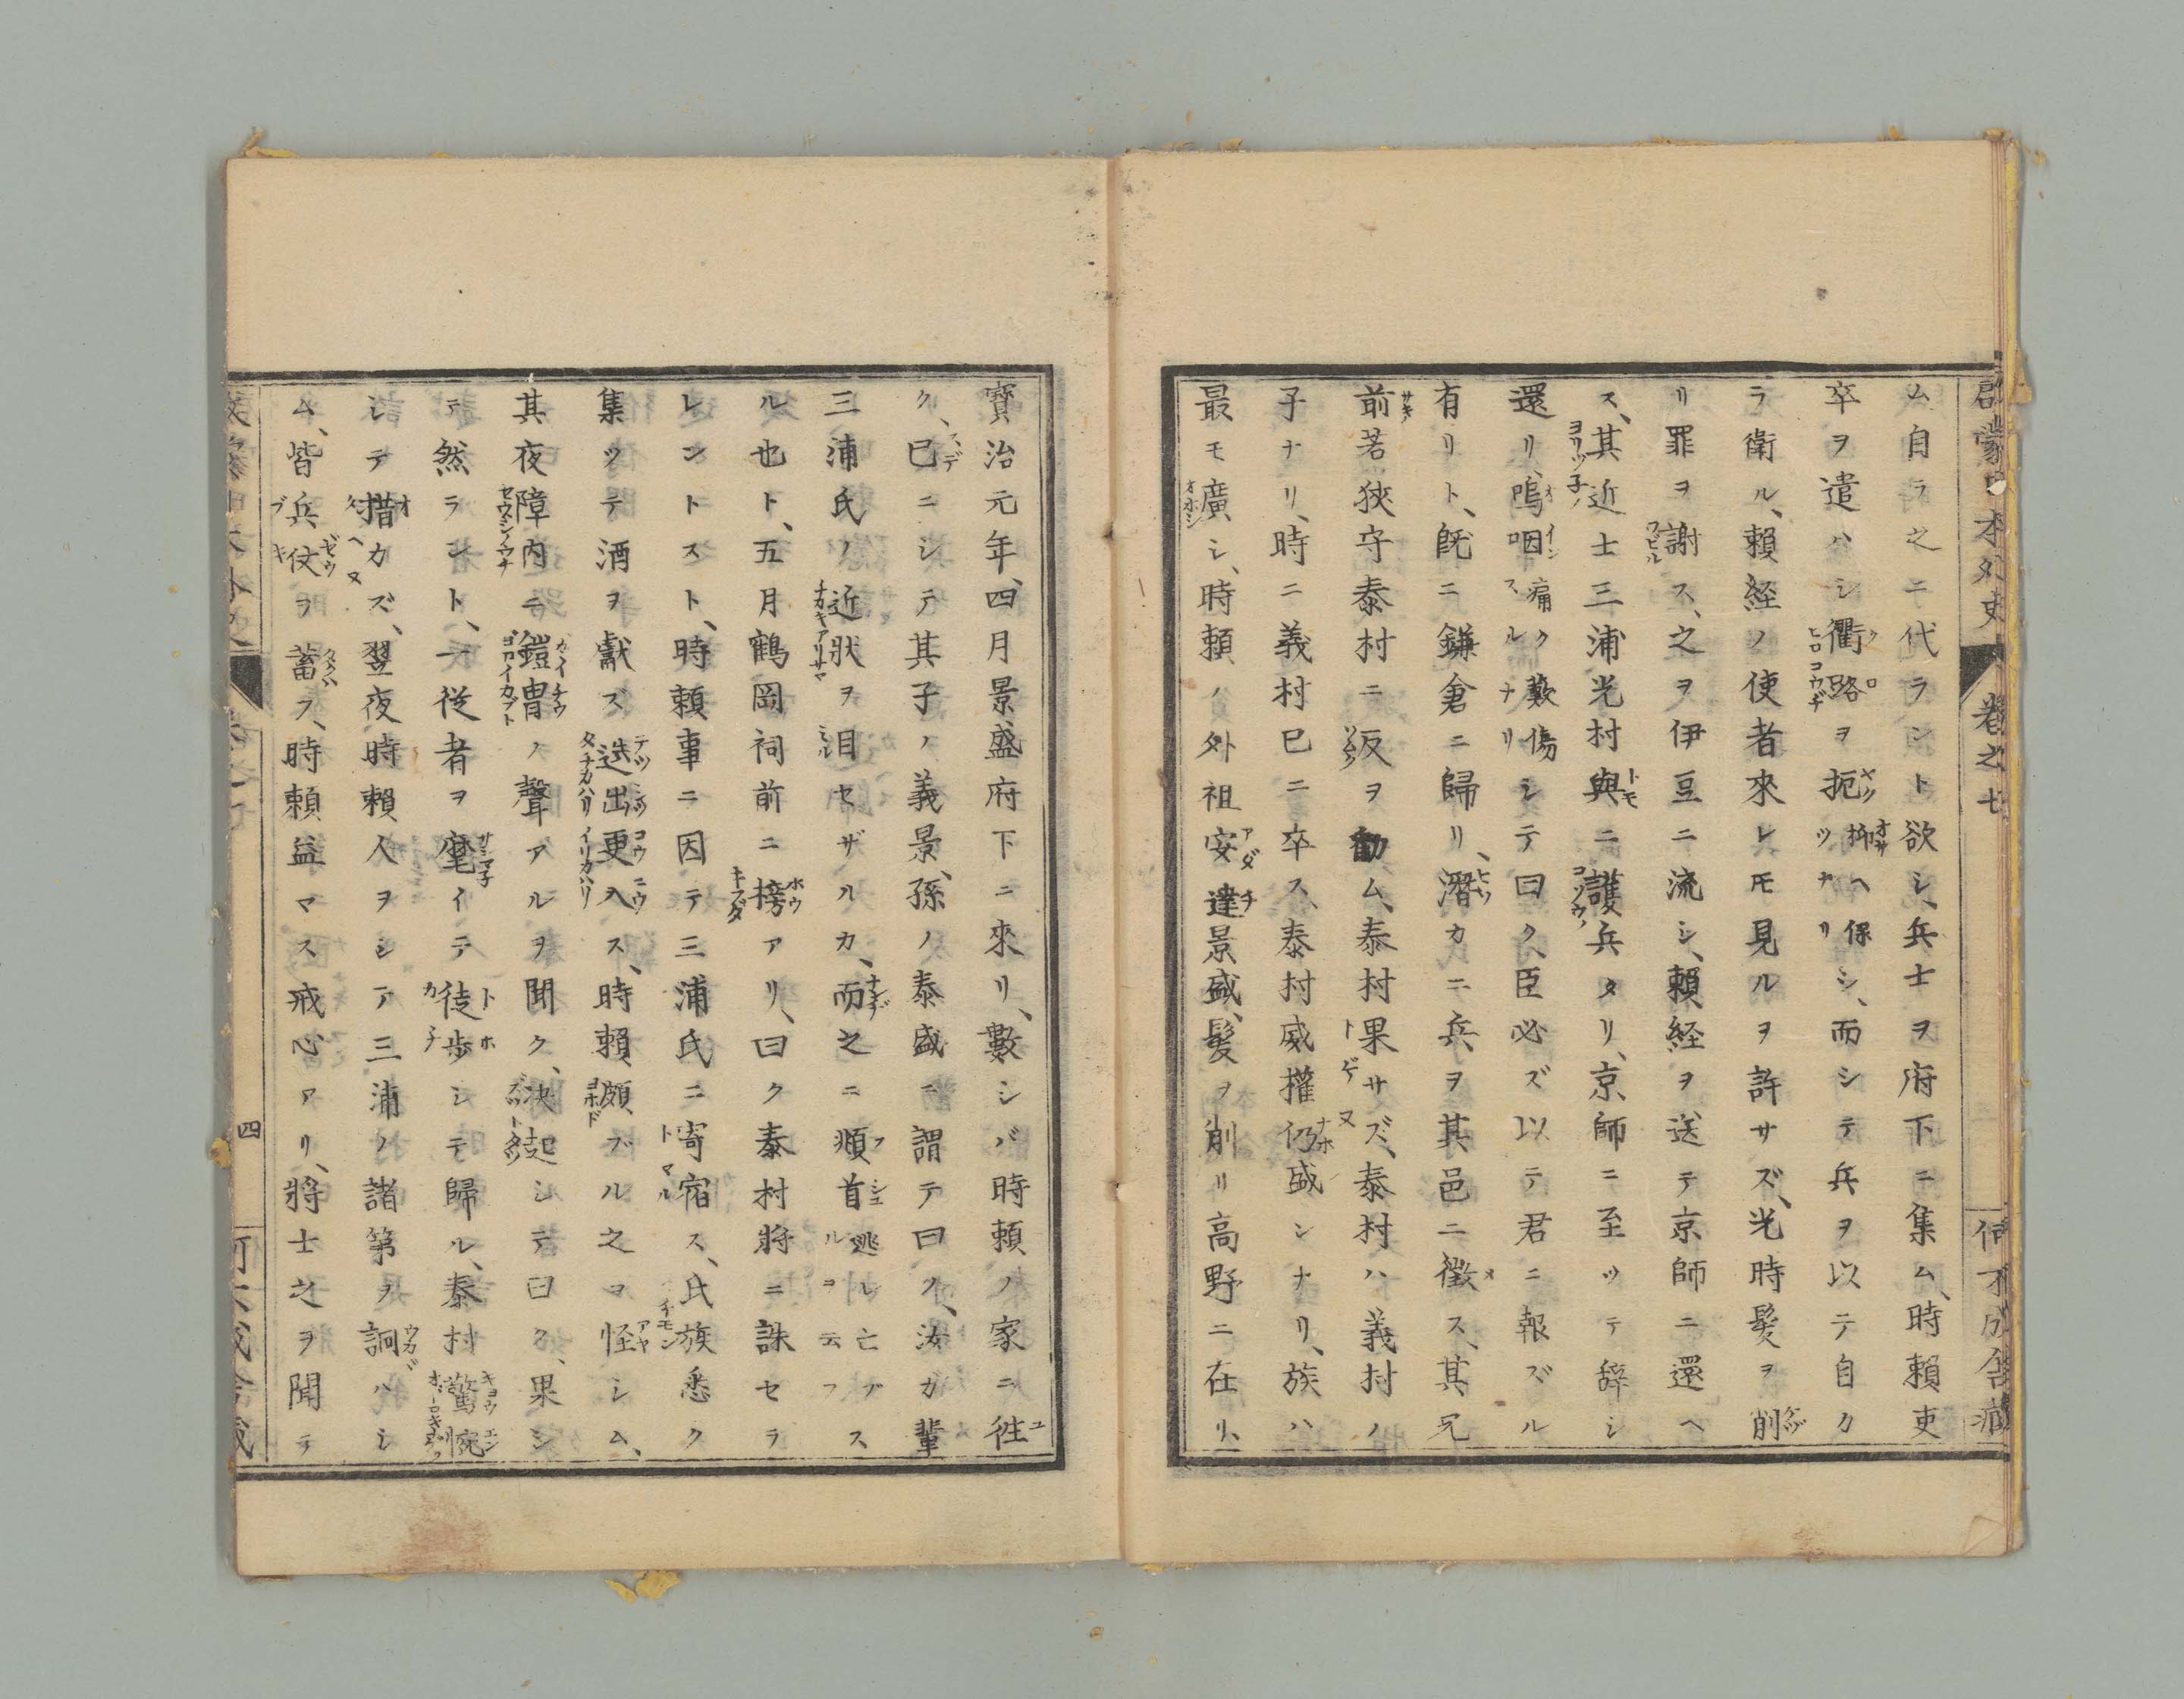 啓蒙日本外史 巻之七 何不成舎藏
ム自ラ之ニ代ラント欲シ、兵士ヲ府下ニ集ム、時頼吏
卒ヲ遣ハシ衢路ヲ扼抑ヘ保シ、而シテ兵ヲ以テ自カ
ラ衛ル、頼経ノ使者來レモ見ルヲ許サズ、光時髪ヲ削
リ罪ヲ謝ス、之ヲ伊豆ニ流シ、頼経ヲ送テ京師ニ還ヘ
ス、其近士三浦光村與ニ護兵タリ、京師ニ至ツテ辞シ
還リ、嗚咽痛ク歎傷シテ曰ク、臣必ズ以テ君ニ報ズル
有リト、既ニ鎌倉ニ歸リ、潛カニ兵ヲ其邑ニ徴ス、其兄
前若狹守泰村ニ反ヲ勸ム、泰村果サズ、泰村ハ義村ノ
子ナリ、時ニ義村已ニ卒ス、泰村威權仍盛ンナリ、族ハ
最モ廣シ、時頼ノ外祖安達景盛、髪ヲ削リ高野ニ在リ、
寶治元年、四月景盛府下ニ來リ、數シバ時頼ノ家ニ往
ク、已ニシテ其子ノ義景、孫ノ泰盛ニ謂テ曰ク、汝ガ輩
三浦氏ノ近状ヲ目セザルカ、而之ニ順首逃レ亡ブス
ル也ト、五月鶴岡祠前ニ榜アリ、曰ク泰村將ニ誅セラ
レントスト、時頼事ニ因テ三浦氏ニ寄宿ス、氏族悉ク
集ツテ酒ヲ獻ズ迭出更入ス、時頼頗ブル之ヲ怪シム、
其夜障内ニ鎧冑ノ聲アルヲ聞ク、決起シテ曰ク、果シ
テ然ラント、一從者ヲ麾イテ徒歩シテ歸ル、泰村驚惋
シテ措カズ、翌夜時頼人ヲシテ三浦ノ諸第ヲ詗ハシ
ム、皆兵仗ヲ蓄フ、時頼益マス戒心アリ、將士之ヲ聞テ
四